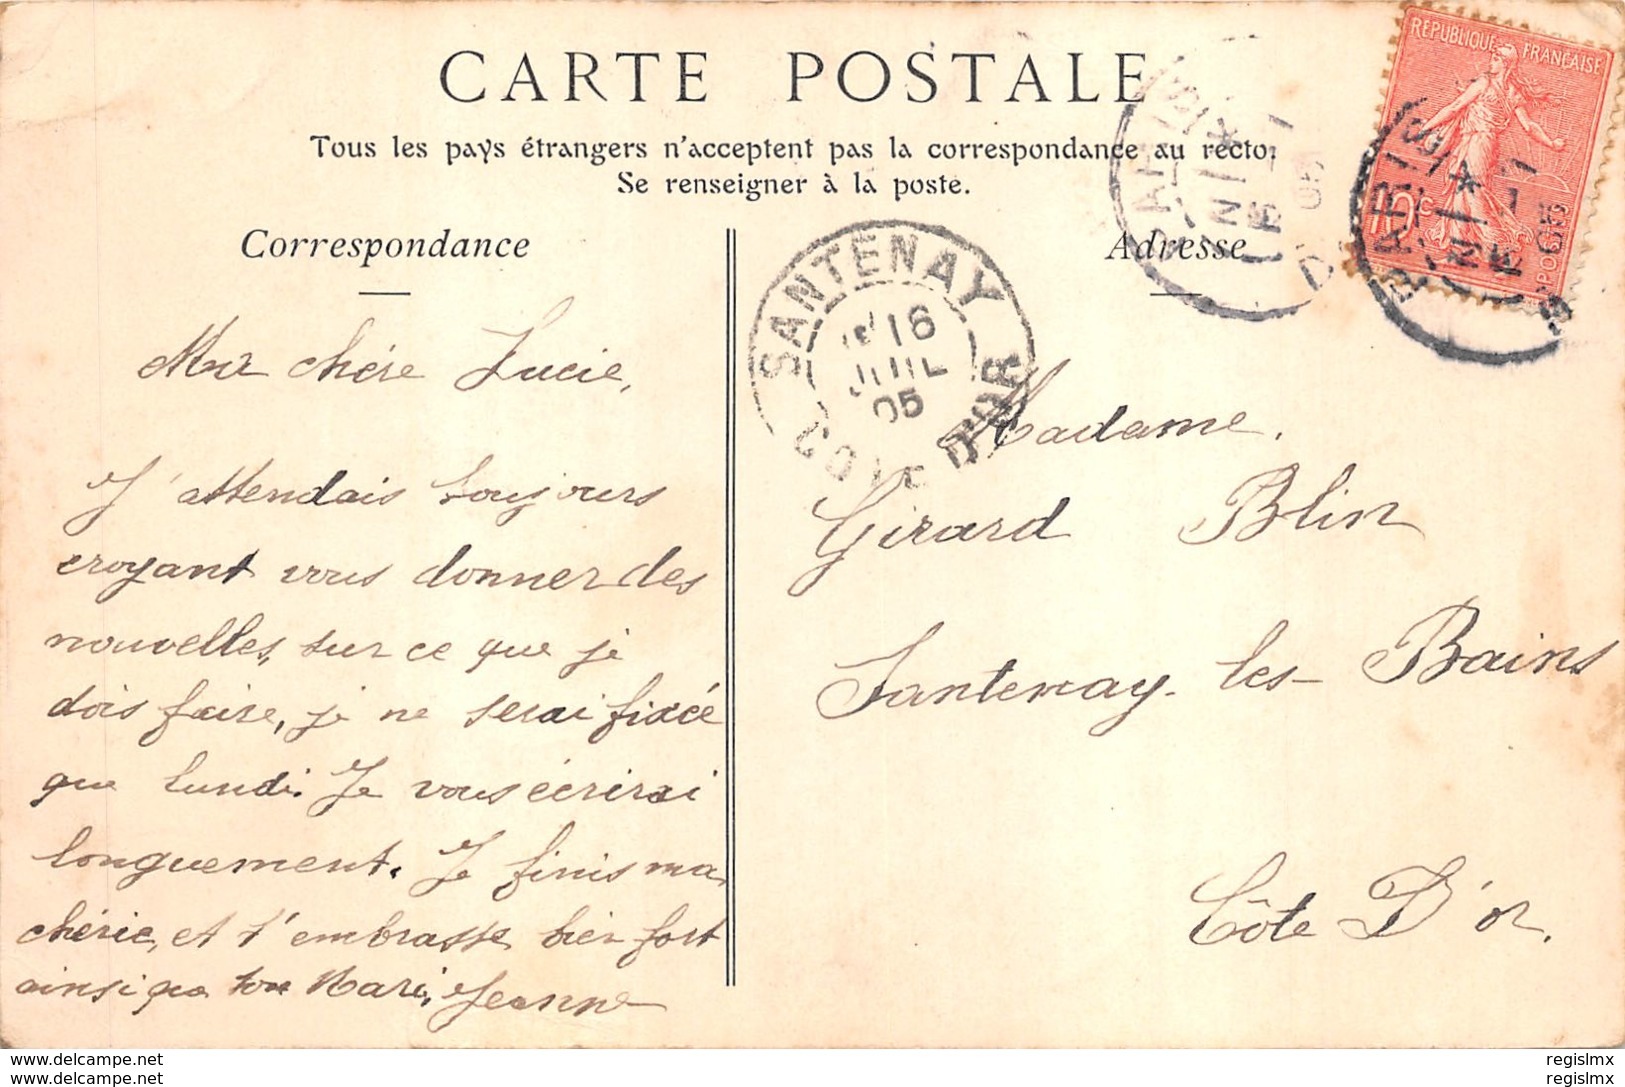 CARTE POSTALE
Tous les pays étrangers n'acceptent pas la correspondance au recto.
Se renseigner à la poste.
Correspondance
Ma chère Lucie,
J'attendais toujours
croyant vous donner des
nouvelles, sur ce que je
dois faire, je ne serai fixée
que lundi. Je vous écrirai
longuement. Je finis ma
chérie, et t'embrasse bien fort
ainsi que ton Mari, Jeanne
SANTENAY
16
JUIL
05
CÔTE D'OR
Adresse
Madame.
Girard Blin
Santenay-les-Bains
Côte D'or.
RÉPUBLIQUE FRANÇAISE
10c
POSTES
PARIS
PARIS
www.delcampe.net
www.delcampe.net
regislmx
regislmx